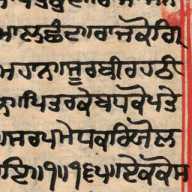 ਮਾਲਛੰਦ॥ਰਾਜਕੋਗ੍ਰਿ
ਮਹਾਨ॥ਸੂਰਬੀਰਹਠੀ
ਨ॥ਪਿਤਰਕੇਬਧਕੋਪਤੇ
ਸਰਪਮੇਧਕਰਿਯੋਲ
ਇ॥੧॥੧੬੫॥ਏਕਕੋਸ